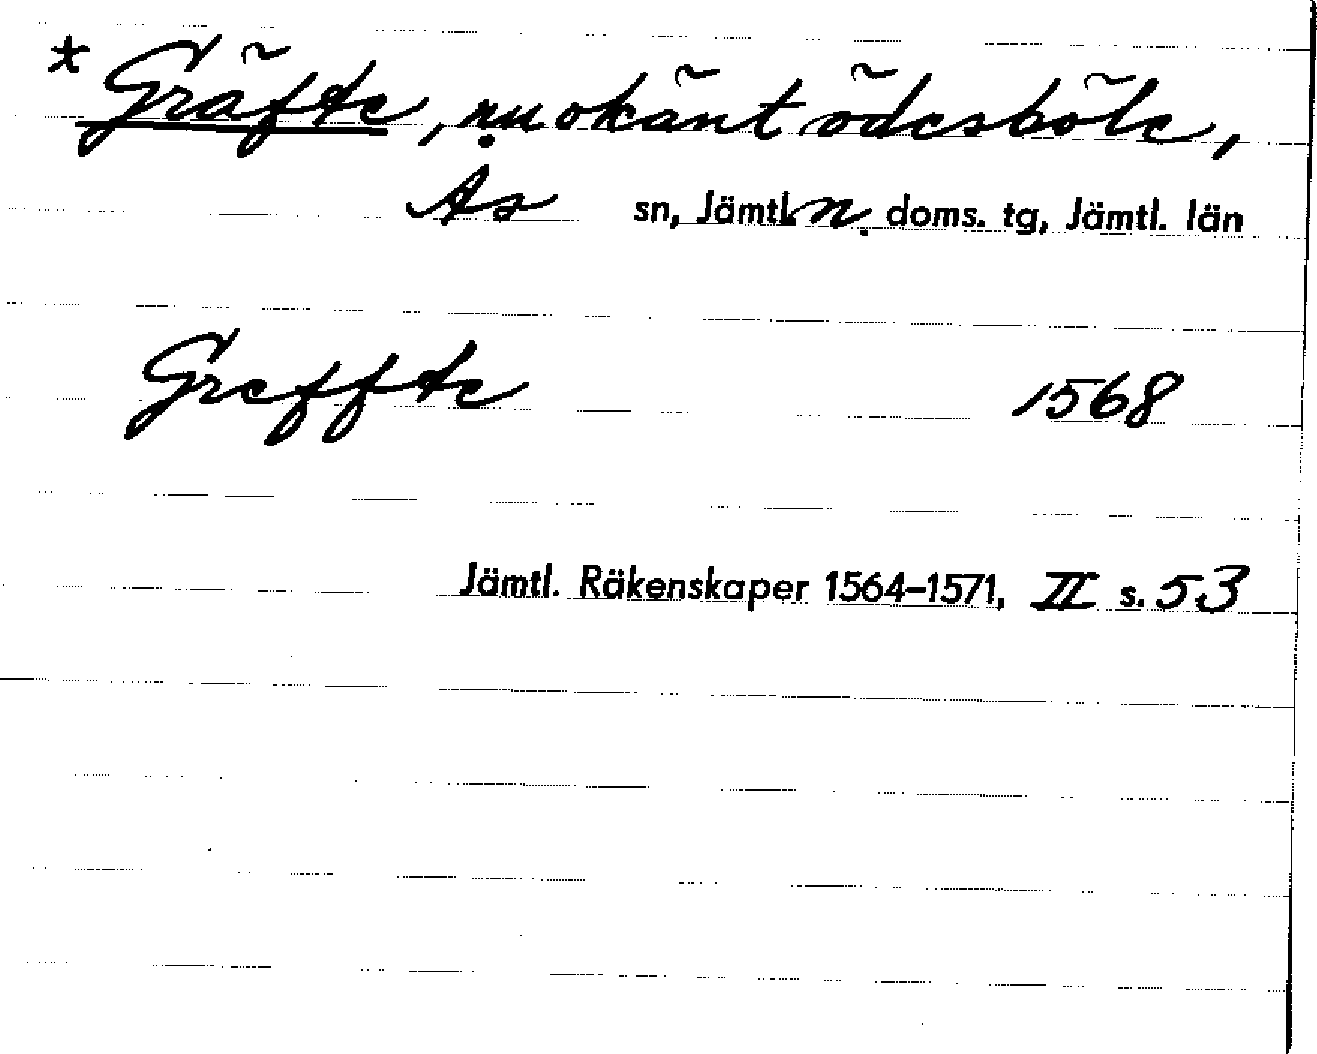 * Gräfte, nu okänt ödesböle,
Ås sn, Jämtl. n. doms. tg, Jämtl. län
Greffte 1568
Jämtl. Räkenskaper 1564–1571, II s. 53